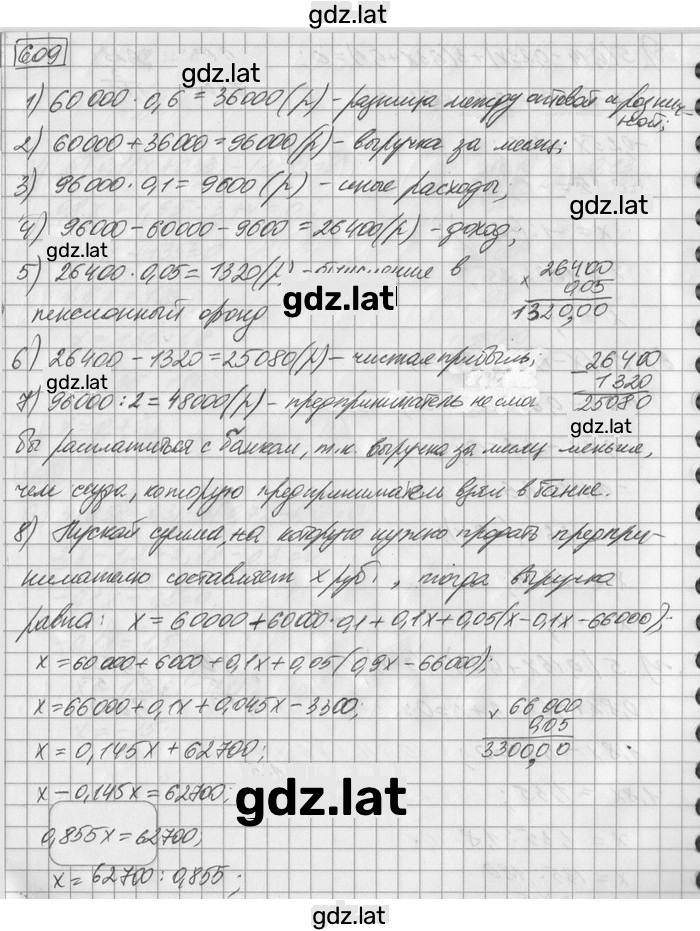 gdz.lat
609
gdz.lat
1) 60 000 · 0,6 = 36000 (р) - разница между оптовой и розничной;
2) 60000 + 36000 = 96000 (р) - выручка за месяц;
3) 96000 · 0,1 = 9600 (р) - иные расходы;
gdz.lat
4) 96000 - 60000 - 9600 = 26400 (р) - доход;
gdz.lat
5) 26400 · 0,05 = 1320 (р) - в
пенсионный фонд
gdz.lat
× 26400
0,05
1320,00
6) 26400 - 1320 = 25080 (р) - чистая прибыль;
- 26400
1320
25080
gdz.lat
7) 96000 : 2 = 48000 (р) - предприниматель не смог
gdz.lat
бы расплатиться с банком, т.к. выручка за месяц меньше,
чем ссуда, которую предприниматель взял в банке.
8) Пускай сумма, на которую нужно продать предпри-
нимателю составляет x руб, тогда выручка
равна: x = 60000 + 60000 · 0,1 + 0,1x + 0,05(x - 0,1x - 66000);
x = 60000 + 6000 + 0,1x + 0,05(0,9x - 66000);
x = 66000 + 0,1x + 0,045x - 3300;
× 66000
0,05
3300,00
x = 0,145x + 62700;
x - 0,145x = 62700;
gdz.lat
0,855x = 62700;
x = 62700 : 0,855;
gdz.lat